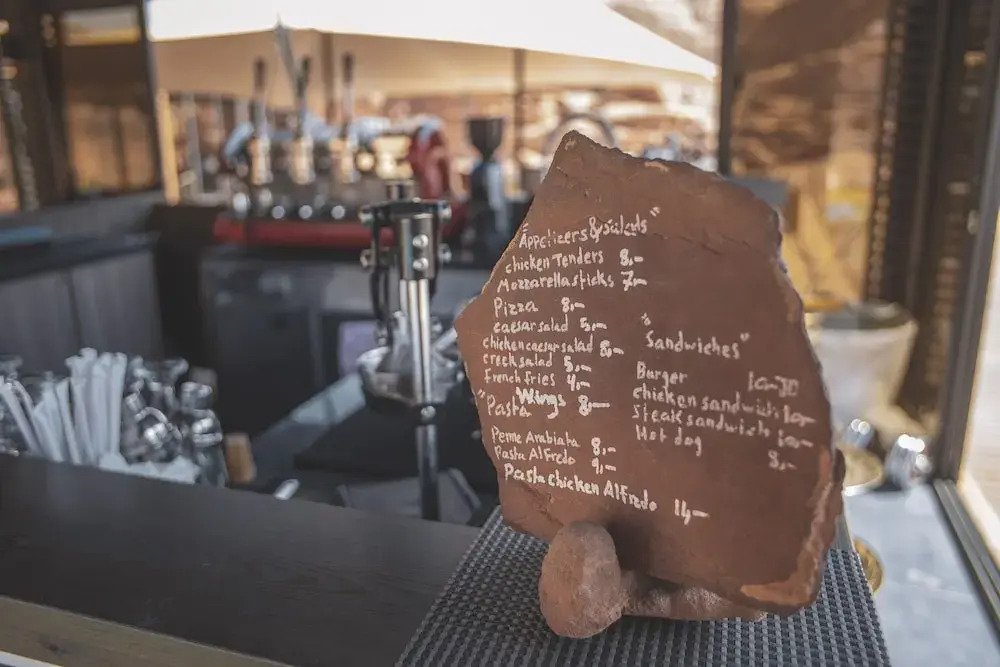 "Appetizers & salads"
chicken Tenders 8,-
Mozzarella sticks 7,-
Pizza 8,-
caesar salad 5,-
chicken caesar salad 8,-
creek salad 5,-
French fries 4,-
Wings 8,-
"Pasta"
Penne Arabiata 8,-
Pasta Alfredo 9,-
Pasta chicken Alfredo 14,-
"Sandwiches"
Burger
chicken sandwich 10,-
steak sandwich 10,-
Hot dog 8,-